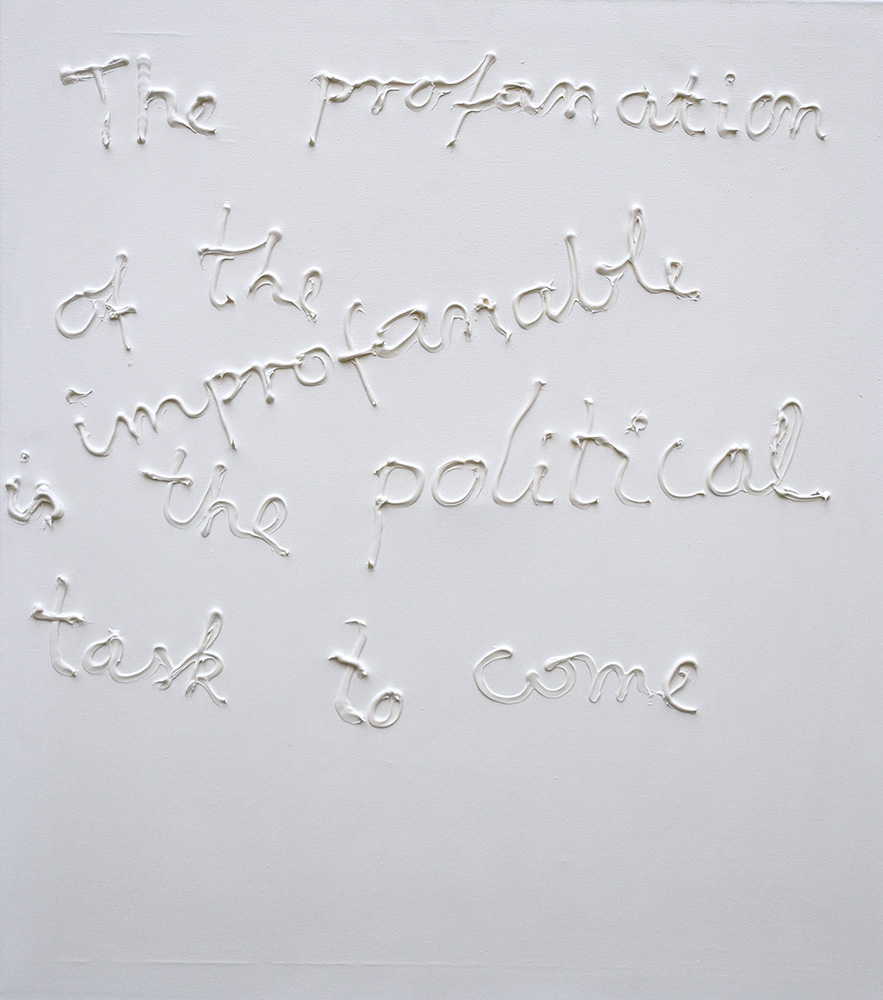 The profanation
of the
improfanable
is the political
task to come